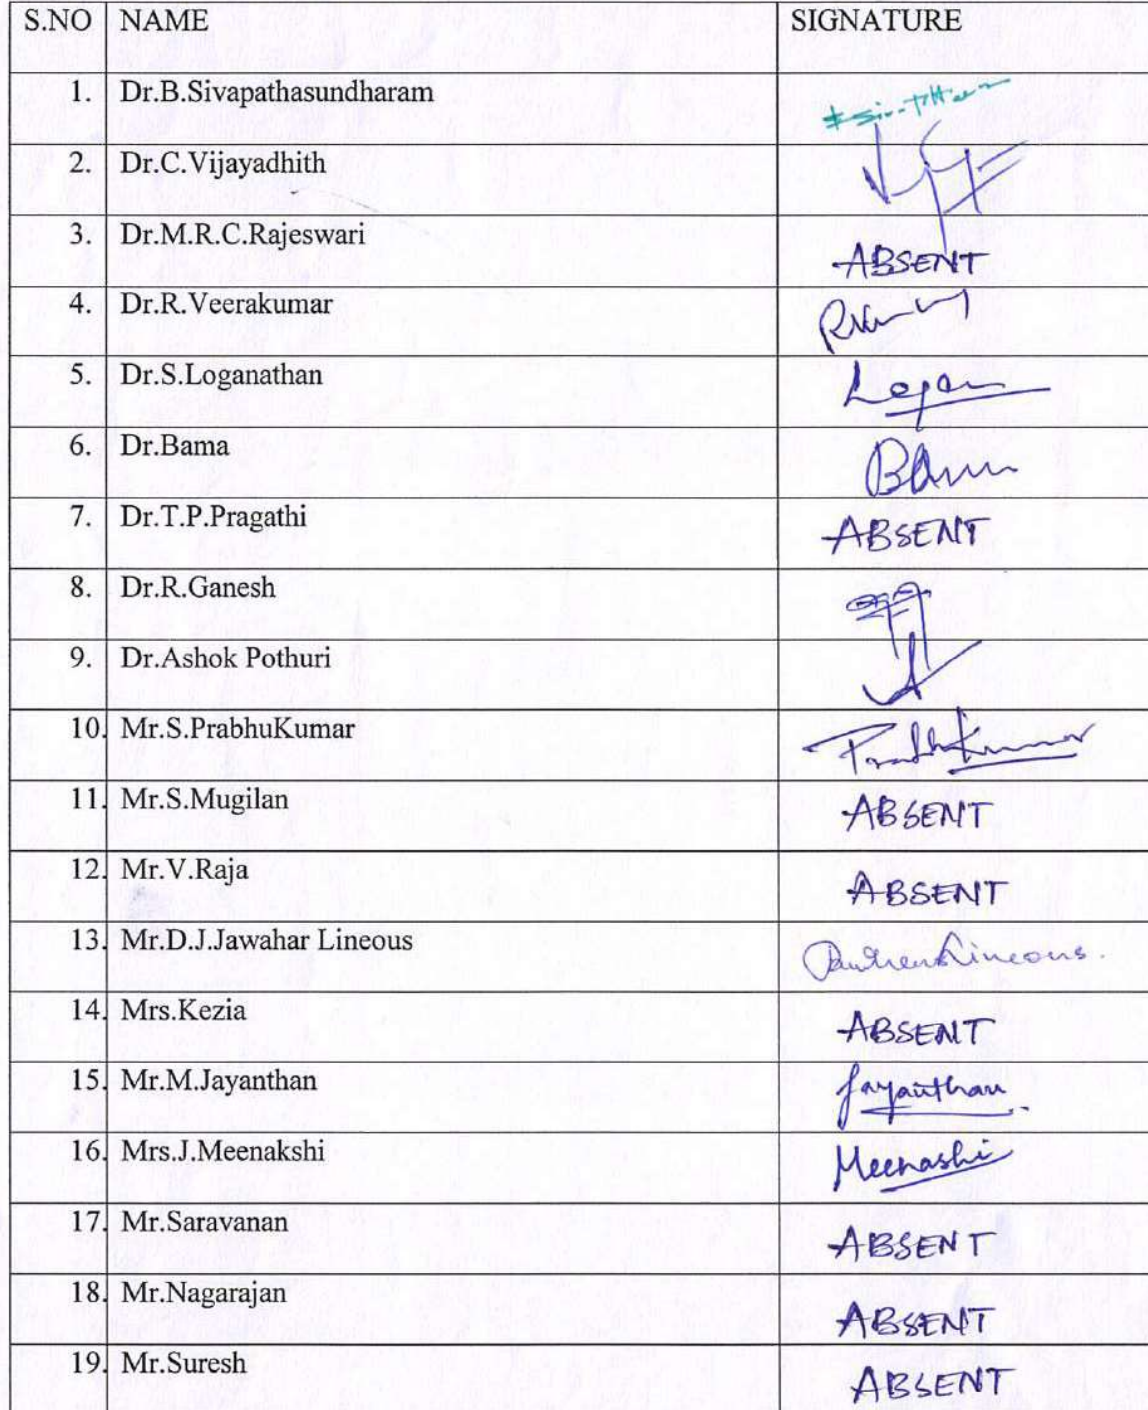 S.NO NAME SIGNATURE
1. Dr.B.Sivapathasundharam
2. Dr.C.Vijayadhith
3. Dr.M.R.C.Rajeswari ABSENT
4. Dr.R.Veerakumar
5. Dr.S.Loganathan Logan
6. Dr.Bama Bama
7. Dr.T.P.Pragathi ABSENT
8. Dr.R.Ganesh
9. Dr.Ashok Pothuri
10. Mr.S.PrabhuKumar PrabhuKumar
11. Mr.S.Mugilan ABSENT
12. Mr.V.Raja ABSENT
13. Mr.D.J.Jawahar Lineous Lineous.
14. Mrs.Kezia ABSENT
15. Mr.M.Jayanthan Jayanthan.
16. Mrs.J.Meenakshi Meenashi
17. Mr.Saravanan ABSENT
18. Mr.Nagarajan ABSENT
19. Mr.Suresh ABSENT